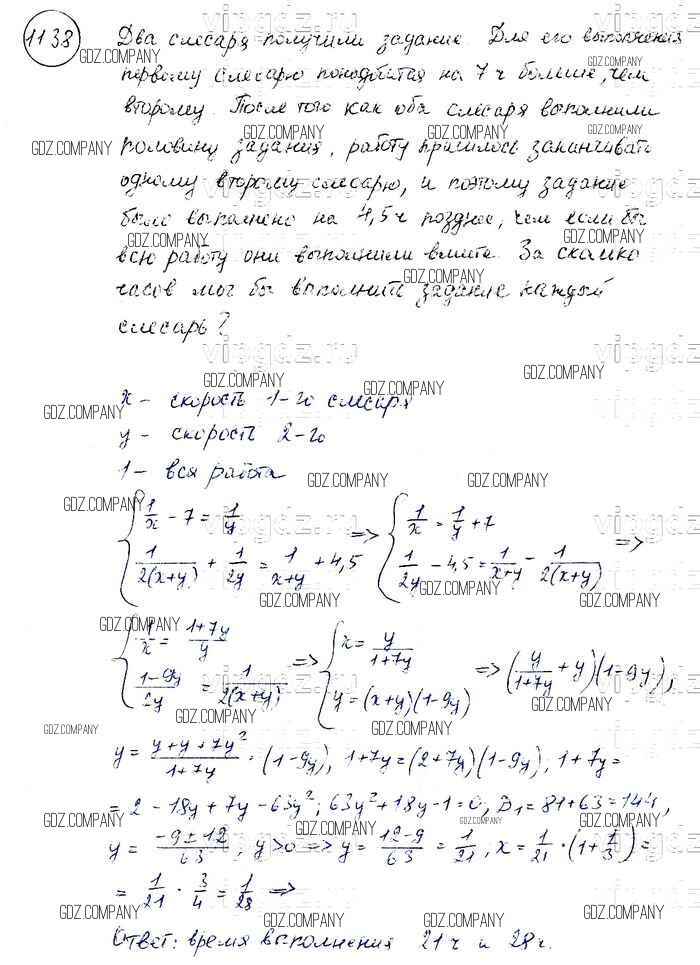 1138 Два слесаря получили задание. Для его выполнения
первому слесарю понадобится на 7 ч больше, чем
второму. После того как оба слесаря выполнили
половину задания, работу пришлось заканчивать
одному второму слесарю, и поэтому задание
было выполнено на 4,5 ч позднее, чем если бы
всю работу они выполнили вместе. За сколько
часов мог бы выполнить задание каждый
слесарь?
x - скорость 1-го слесаря
y - скорость 2-го
1 - вся работа
{ 1/x - 7 = 1/y ; 1/(2(x+y)) + 1/(2y) = 1/(x+y) + 4,5 => { 1/x = 1/y + 7 ; 1/(2y) - 4,5 = 1/(x+y) - 1/(2(x+y)) =>
{ 1/x = (1+7y)/y ; (1-9y)/(2y) = 1/(2(x+y)) => { x = y/(1+7y) ; y = (x+y)(1-9y) => (y/(1+7y) + y)(1-9y),
y = (y+y+7y²)/(1+7y) · (1-9y), 1+7y = (2+7y)(1-9y), 1+7y =
= 2 - 18y + 7y - 63y²; 63y² + 18y - 1 = 0, D₁ = 81+63 = 144,
y = (-9±12)/63, y>0 => y = (12-9)/63 = 1/21, x = 1/21 · (1+1/3) =
= 1/21 · 3/4 = 1/28 =>
Ответ: время выполнения 21 ч и 28 ч.
GDZ.COMPANY
vipgdz.ru